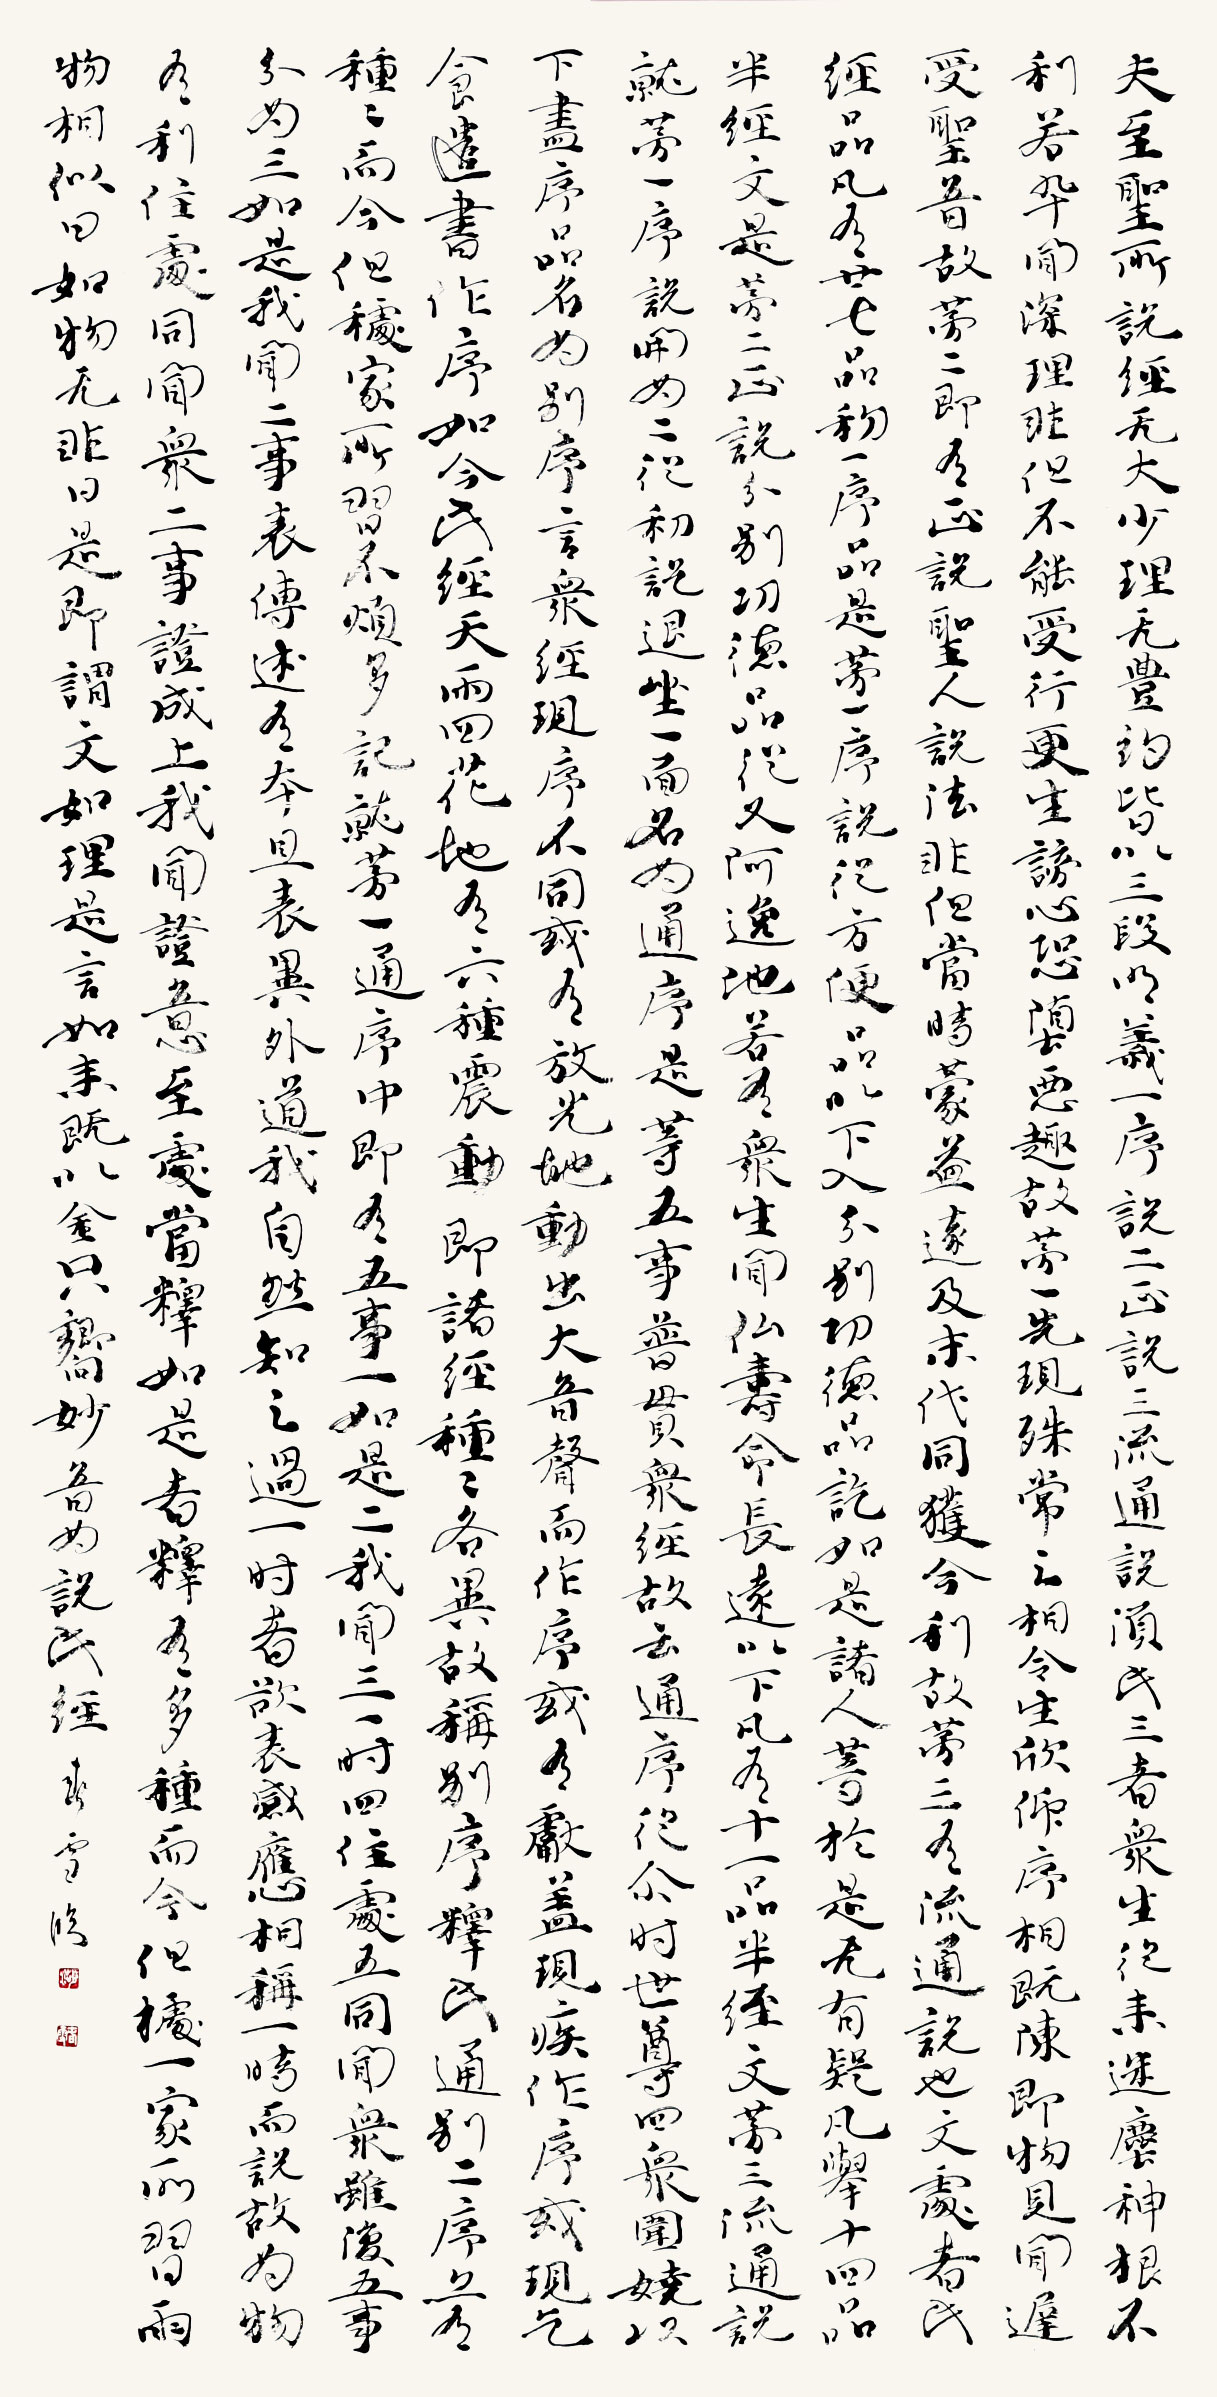 夫至聖所說經无大少理无豊約皆以三段明義一序說二正說三流通說須此三者衆生從来迷塵神根不
利若卒聞深理非但不能受行更生謗心恐墮惡趣故第一先現殊常之相令生欣仰序相既陳即物見聞遅
受聖音故第二即有正說聖人說法非但當時蒙益遂及末代同獲今利故第三有流通說也文處者此
經品凡有廿七品初一序品是第一序說從方便品以下入分別功德品訖如是諸人等於是无有疑凡舉十四品
半經文是第二正說分別功德品從又阿逸地若有衆生聞仏壽命長遠以下凡有十一品半經文第三流通說
就第一序說開為二從初訖退坐一面名為通序是等五事普貫衆經故云通序從尒时世尊四衆圍繞以
下盡序品名為別序言衆經現序不同或有放光地動出大音聲而作序或有獻盖現疾作序或現乞
食遣書作序如今此經天雨四花地有六種震動即諸經種〻各異故稱別序釋此通別二序亦有
種〻而今但據家所習不煩多記就第一通序中即有五事一如是二我聞三一时四住處五同聞衆雖復五事
分為三如是我聞二事表傳述有本且表異外道我自然知之過一时者欲表感應相稱一時而說故為物
有利住處同聞衆二事證成上我聞證意至處當釋如是者釋有多種而今但據一家所習雨
物相似曰如物无非曰是即謂文如理是言如来既以金口嚮妙音為說此經 春雪臨